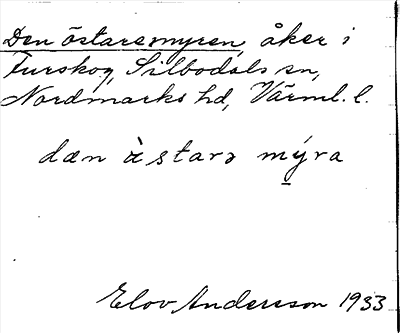 Den östaremyren, åker i
Furskog, Silbodals sn,
Nordmarks hd, Värml. l.
dæn àstarə mýra
Elov Andersson 1933